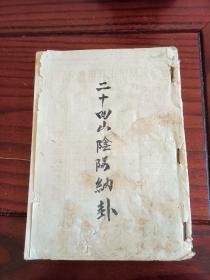 二十四山陰陽納卦